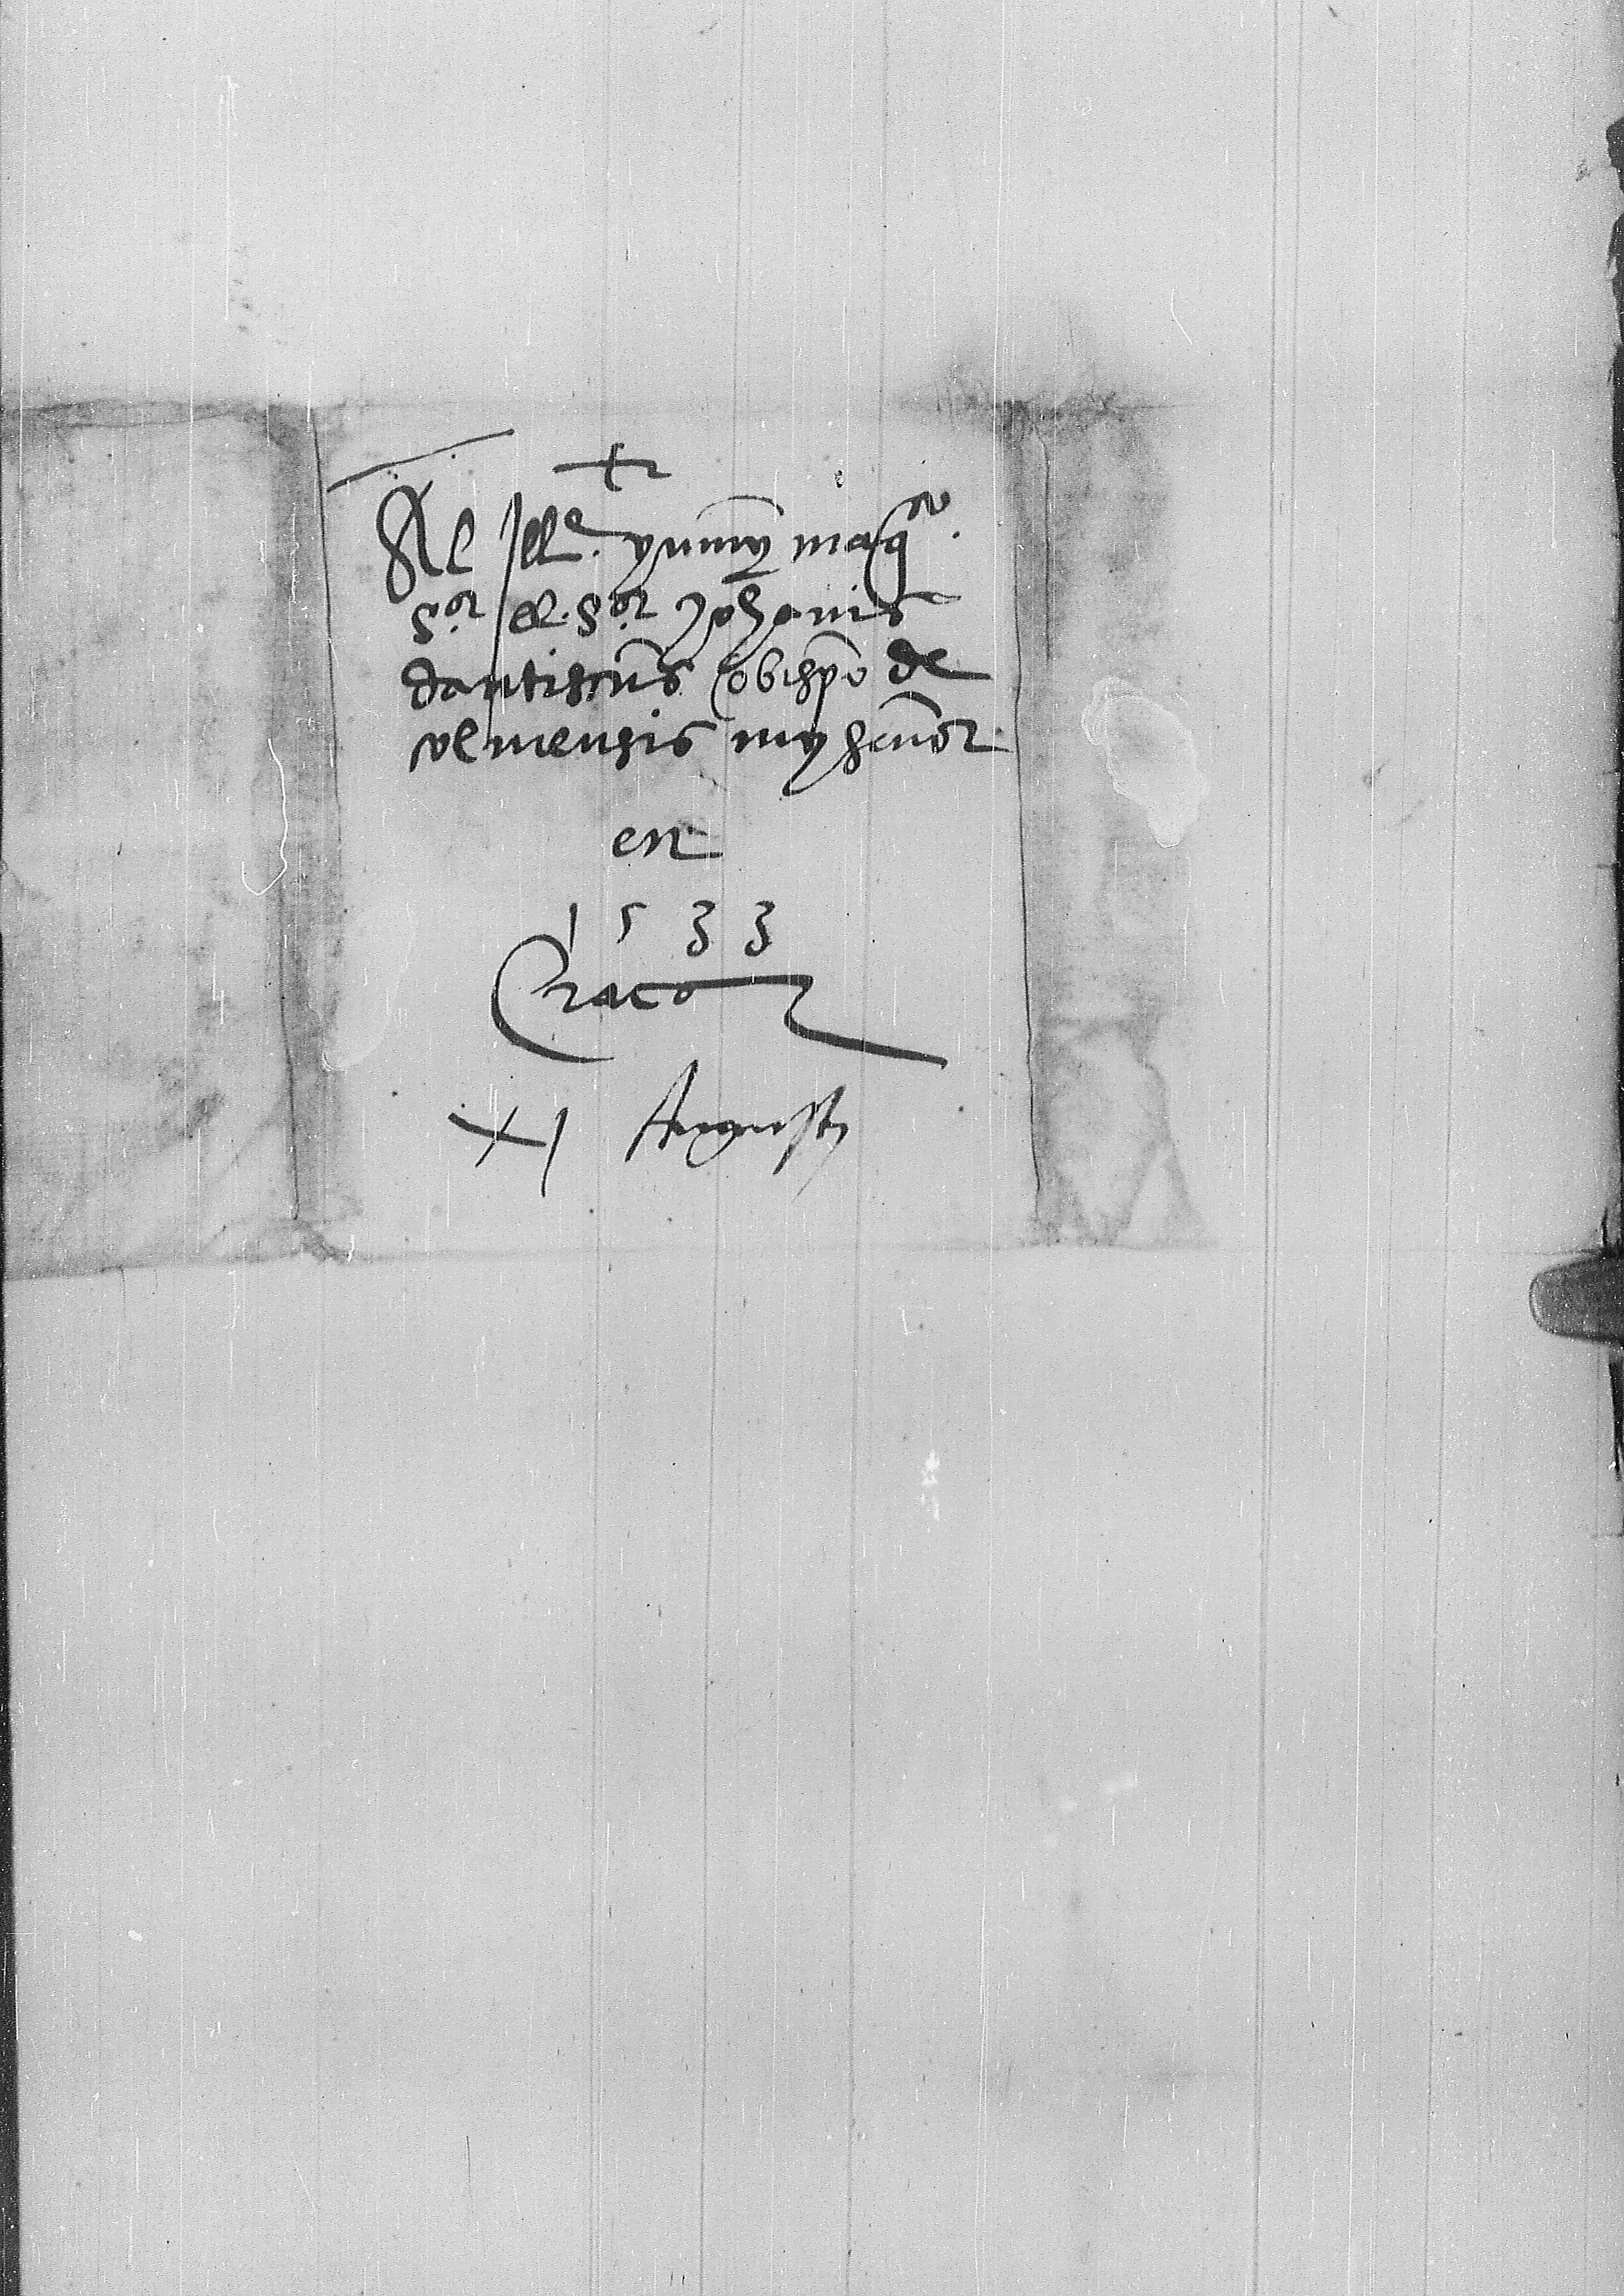 +
Al Jlle. y muy magco.
Sor el Sor Johanis
dantiscus obispo de
velmensis my senor
en
1533
Craco
XI Augusti